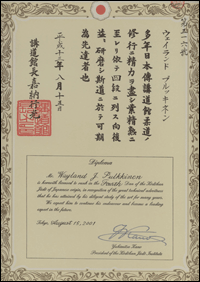 ウェイランド プルッキネン
多年日本傳講道館柔道ノ
修行ニ精力ヲ盡シ業精熟ニ
至レリ依テ四段ニ列ス向後
益々研磨シ斯道ニ於テ可期
為先達者也
平成十三年八月十五日
講道館長嘉納行光
Diploma
Mr. Wayland J. Pulkkinen
is hereunto licensed to rank in the Fourth Dan of the Kodokan
Judo of Japanese origin, in recognition of the good technical attainments
that he has attained by the diligent study of the art for many years.
We expect him to continue his endeavors and become a leading
expert in the future.
Tokyo, August 15, 2001
President of the Kodokan Judo Institute